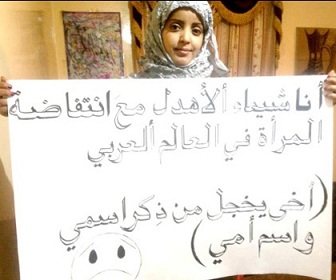 أنا شيماء الأهدل مع انتفاضة
المرأة في العالم ألعربي
(أخي يخجل من ذِكر اسمي
و اسم أمي)